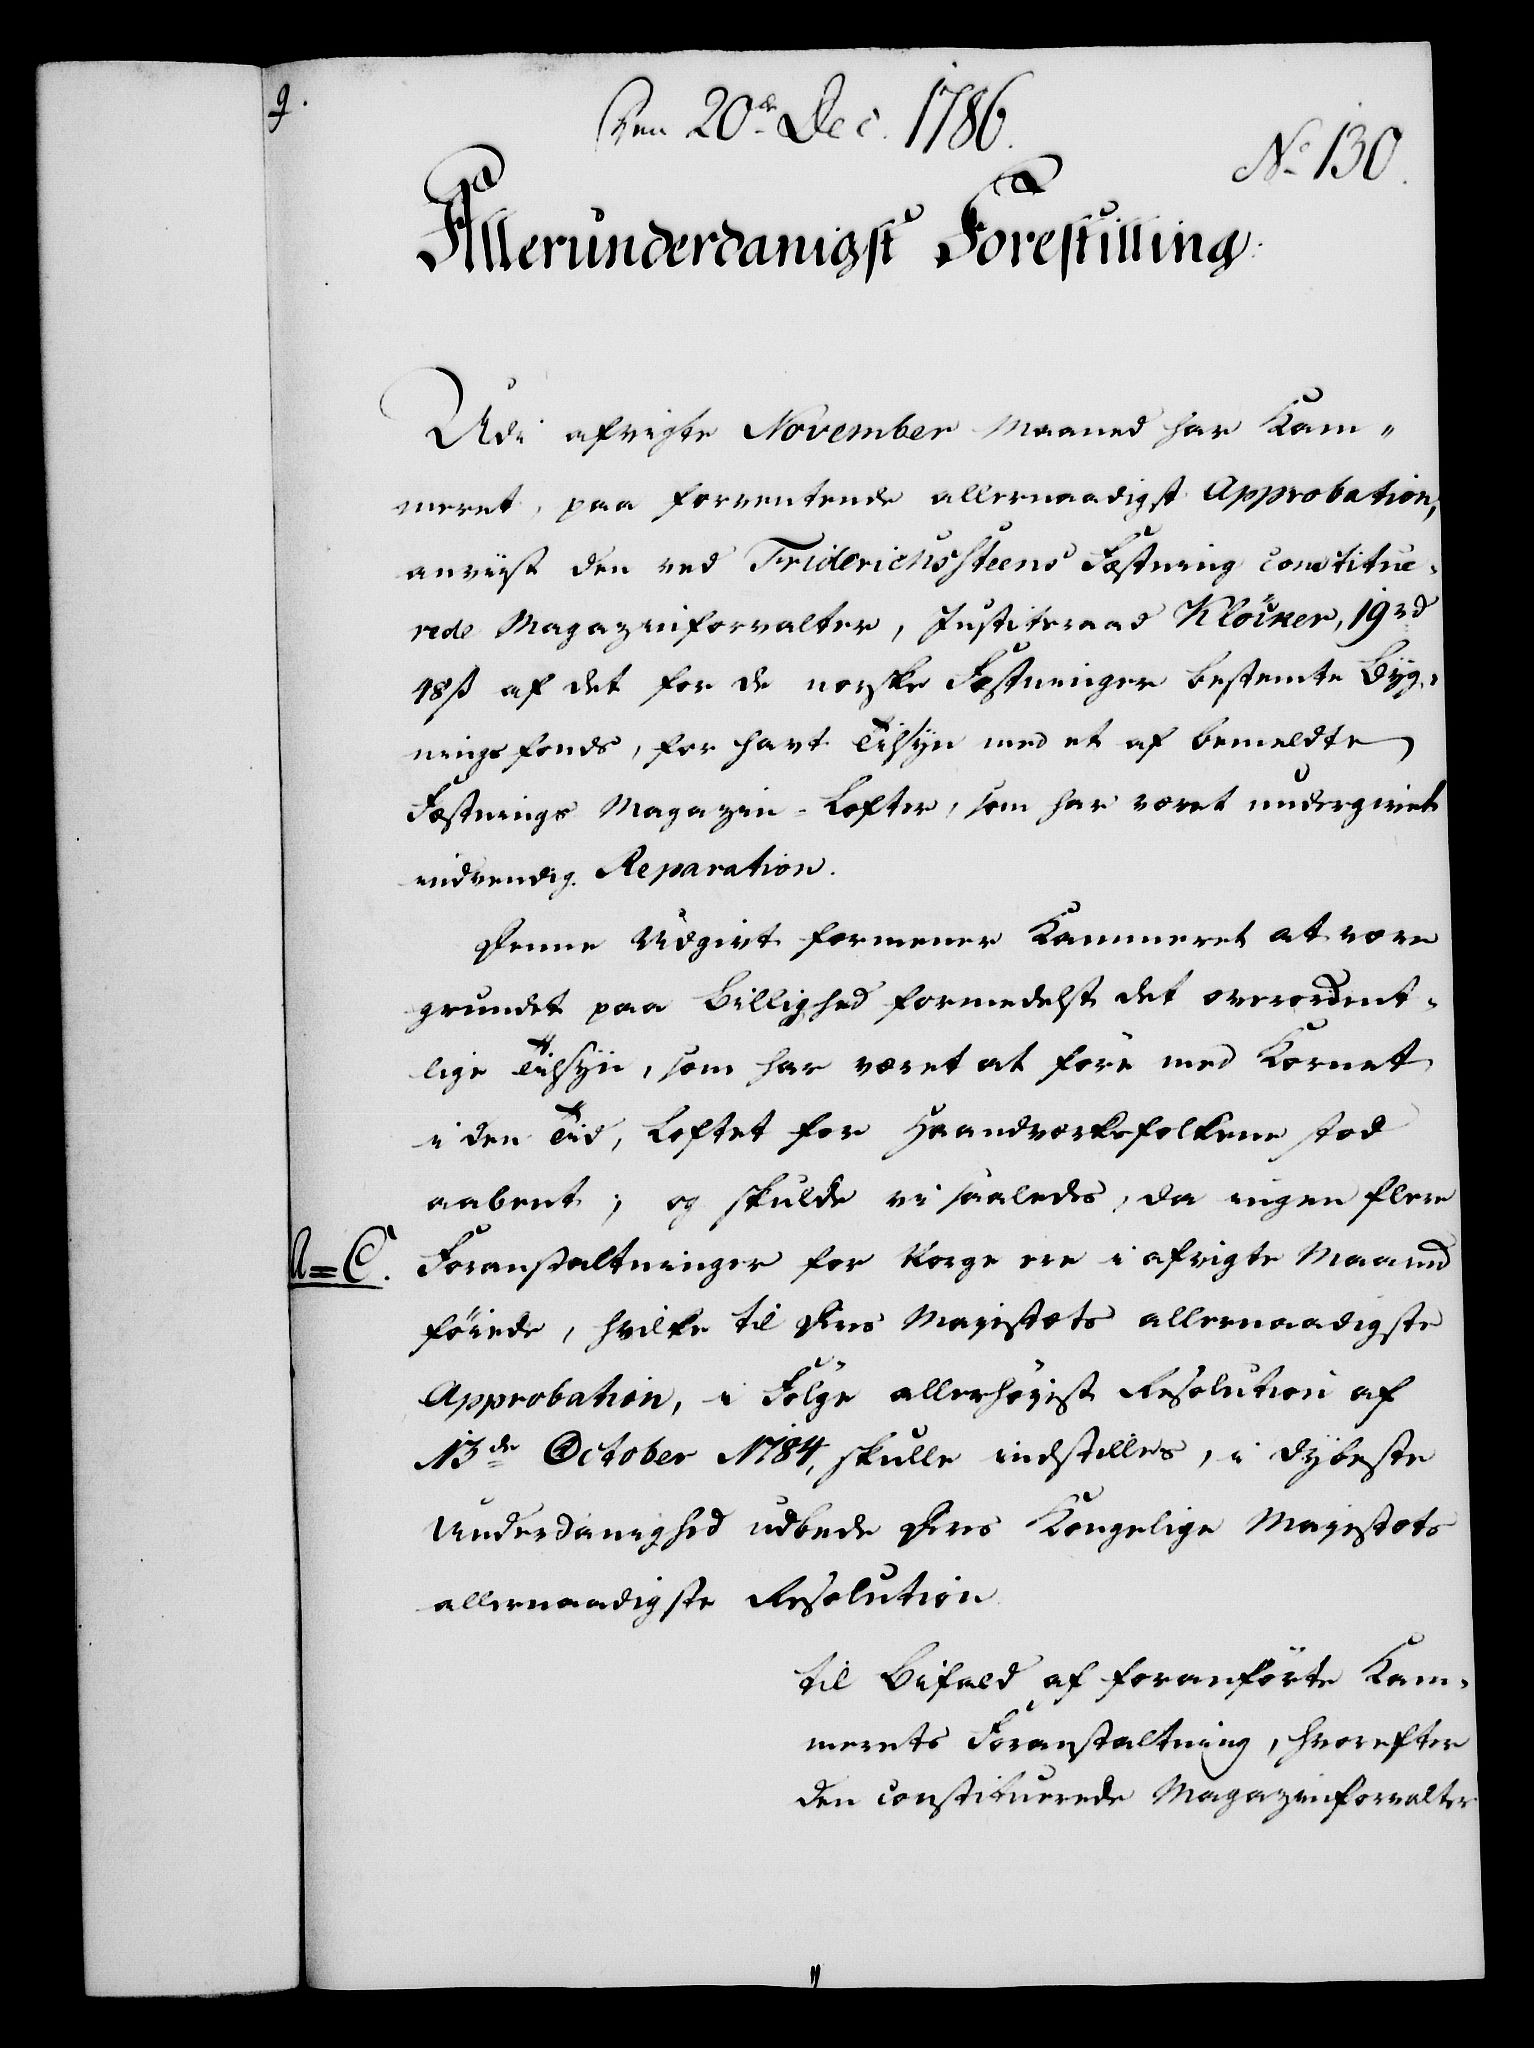 9.
Den 20de Dec. 1786.
No 130.
Allerunderdanigst Forestilling.
Udi afvigte November Maaned har Kam-
meret, paa forventende allernaadigst Approbation,
anviist den ved Friderichssteens Fæstning constitue-
rede Magazinforvalter, Justitsraad Klöcker, 19 rd
48 ß af det for de norske Fæstninger bestemte Byg-
nings fonds, for havt Tilsyn med et af bemeldte
Fæstnings Magazin-Lofter, som har været undergivet
indvendig Reparation.
Denne Udgivt formener Kammeret at være
grundet paa Billighed formedelst det overordent-
lige Tilsyn, som har været at före med Kornet
i den Tid, Loftet for Haandværksfolkene stod
aabent; og skulde vi saaledes, da ingen flere
A=C.
Foranstaltninger for Norge ere i afvigte Maaned
föiede, hvilke til Deres Majestæts allernaadigste
Approbation, i Fölge allerhöyist Resolution af
13de October 1784, skulle indstilles, i dybeste
Underdanighed udbede Deres Kongelige Majestæts
allernaadigste Resolution
til Bifald af foranförte Kam-
merets Foranstaltning, hvorefter
den constituerede Magazinforvalter